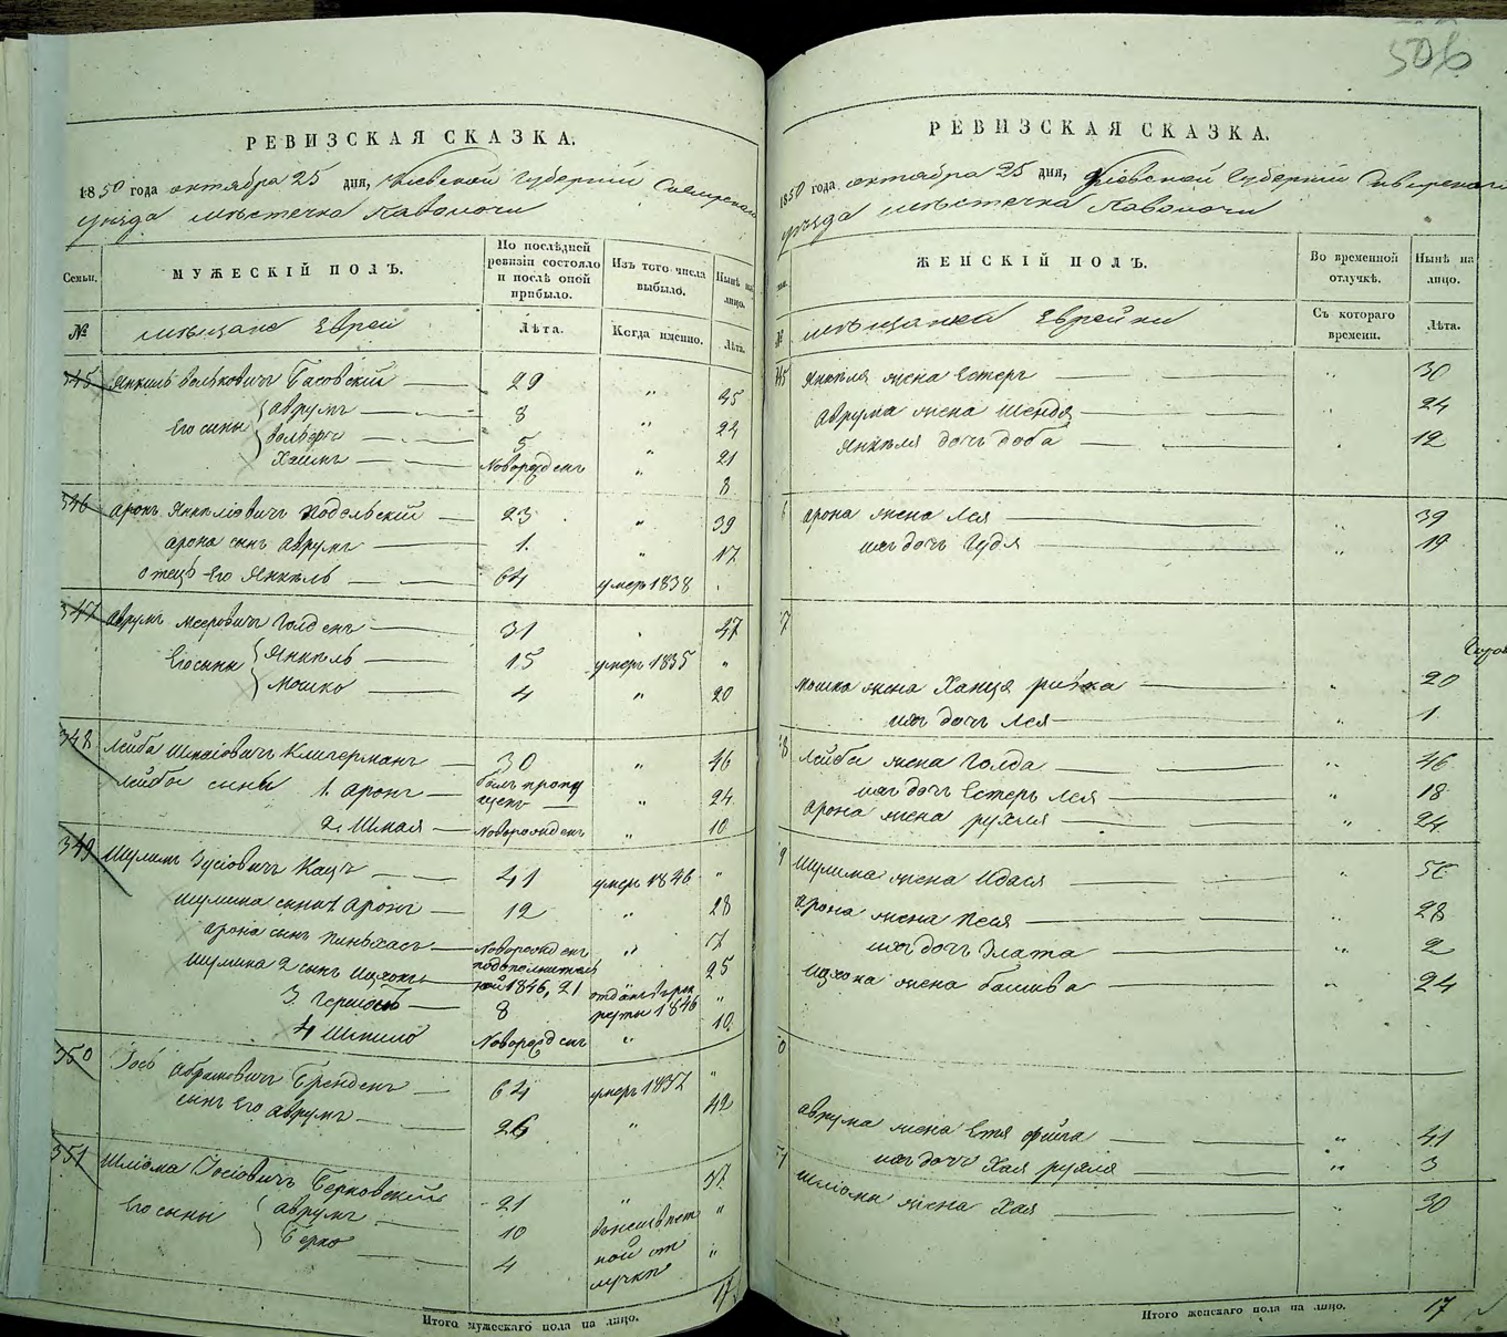 РЕВИЗСКАЯ СКАЗКА.
1850 года октября 25 дня, Кіевской Губерніи Сквирскаго
уѣзда мѣстечка Паволочи
Семьи.
МУЖЕСКІЙ ПОЛЪ.
По послѣдней ревизіи состояло и послѣ оной прибыло.
Изъ того числа выбыло.
Нынѣ на лицо.
№
мѣщане Евреи
Лѣта.
Когда именно.
Лѣта.
345 Янкель Волькович Басовскій 29 " 35
Его сыны
Аврумъ 8 " 24
Вольфъ 5 " 21
Хаимъ Новорожденъ " 8
346 Аронъ Янкелiовичъ Подольскій 23 " 39
Арона сынъ Аврумъ 1. " 17
Отецъ его Янкель 64 умеръ 1838
347 Аврумъ Мееровичъ Голденъ 31 47
Его сыны
Янкель 15 умеръ 1835 "
Мошко 4 " 20
348 Лейба Шмаiовичъ Клигерманъ 30 " 46
Лейбы сыны 1. Аронъ былъ пропущенъ " 24
2. Шмая Новорожденъ " 10
349 Шулимъ Зусiовичъ Кацъ 41 умеръ 1846 "
Шулима сынъ 1 Аронъ 12 " 28
Арона сынъ Пиньхасъ Новорожденъ " 7
Шулима 2 сынъ Ицхокъ 1846, 21 25
3. 8 отданъ въ рекруты 1846 "
4 Шмило Новорожденъ " 10
350 Iось Абрамовичъ Бренденъ 64 умеръ 1837 "
сынъ его Аврумъ 26 " 42
351 Шліома Іосіовичъ Берковскій 21 " 37
Его сыны
Аврумъ 10 "
Берко 4 "
лучкѣ
Итого мужескаго пола на лицо. 17
506
РЕВИЗСКАЯ СКАЗКА.
1850 года октября 25 дня, Кіевской Губерніи Сквирскаго
уѣзда мѣстечка Паволочи
ЖЕНСКІЙ ПОЛЪ.
Во временной отлучкѣ.
Нынѣ на лицо.
№
мѣщанки Еврейки
Съ котораго времени.
Лѣта.
345 Янкеля жена Естеръ " 30
Аврума жена Шендя " 24
Янкеля дочь Доба 12
6 Арона жена Лея " 39
ихъ дочь Гудя " 19
7
Мошка жена Ханця Ривка " 20
ихъ дочь Лея " 1
8 Лейбы жена Голда " 46
ихъ дочь Естеръ Лея " 18
Арона жена Рухля " 24
9 Шулима жена Идася " 56
Арона жена Песя " 28
ихъ дочь Злата " 2
Ицхока жена Башива " 24
0
Аврума жена Етя Фейга " 41
ихъ дочь Хая Рухля " 3
1 Шліомы жена Хая " 30
Итого женскаго пола на лицо. 17